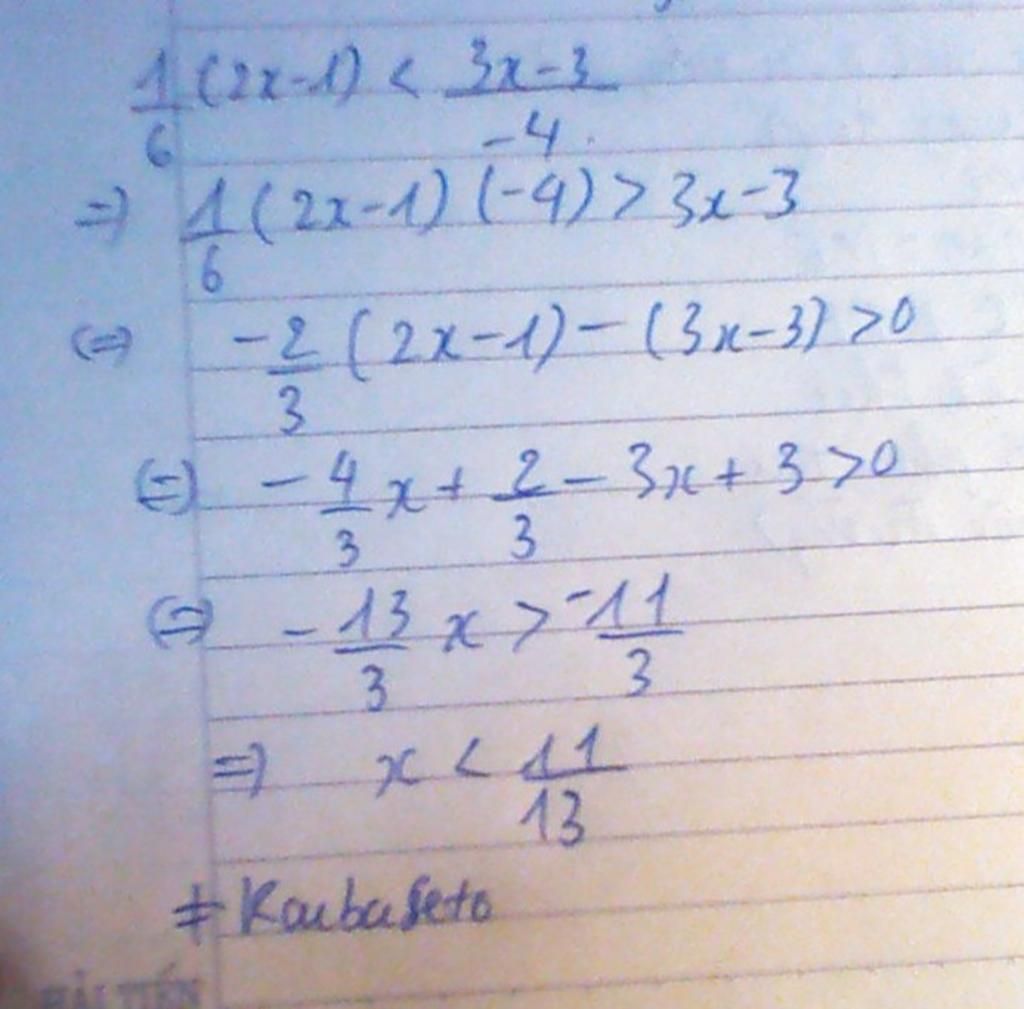 1/6 (2x-1) < (3x-3)/-4
=) 1/6 (2x-1) (-4) > 3x-3
(=) -2/3 (2x-1) - (3x-3) >0
(=) -4/3 x + 2/3 - 3x + 3 >0
(=) -13/3 x > -11/3
=) x < 11/13
# Kaubaseto
HẢI TIẾN